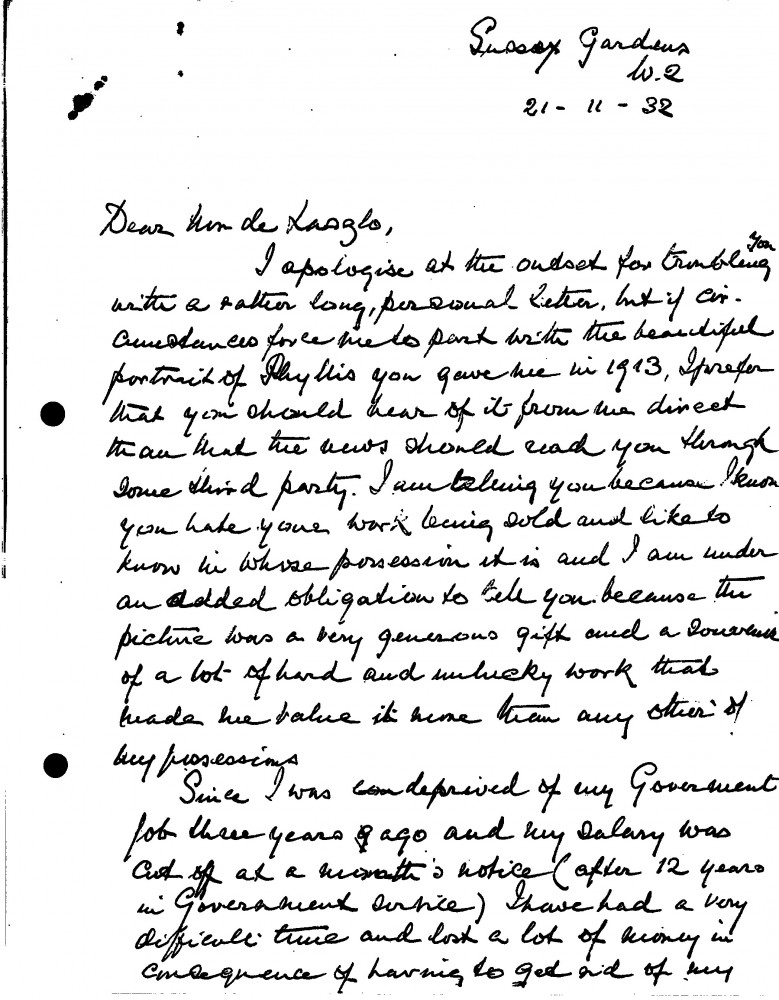 Sussex Gardens
W.2
21 - 11 - 32
Dear Mr de Laszlo,
I apologise at the outset for troubling you
with a rather long, personal letter, but if cir-
cumstances force me to part with the beautiful
portrait of Phyllis you gave me in 1913, I prefer
that you should hear of it from me direct
than that the news should reach you through
some third party. I am telling you because I know
you hate your work being sold and like to
know in whose possession it is and I am under
an added obligation to tell you because the
picture was a very generous gift and a souvenir
of a lot of hard and unlucky work that
made me value it more than any other of
my possessions
Since I was deprived of my Government
job three years ago and my salary was
cut off at a month's notice (after 12 years
in Government service) I have had a very
difficult time and lost a lot of money in
consequence of having to get rid of my